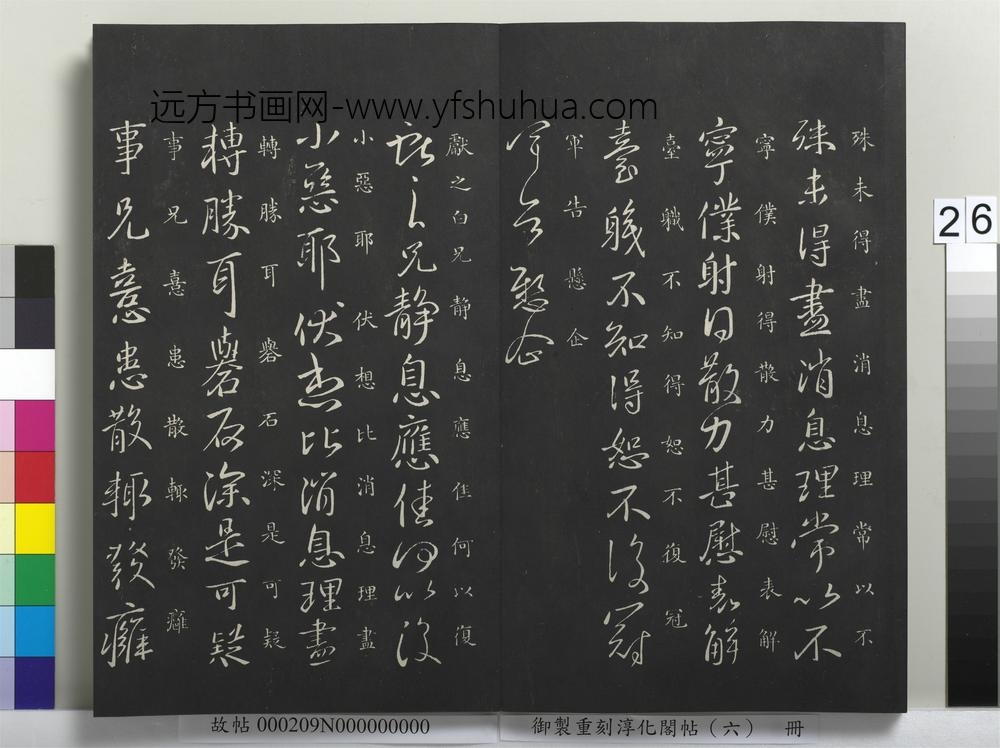 远方书画网-www.yfshuhua.com
殊未得盡消息理常以不
殊未得盡消息理常以不
寧僕射得散力甚慰表解
寧僕射得散力甚慰表解
臺職不知得恕不復冠
臺職不知得恕不復冠
軍告懸企
軍告懸企
獻之白兄静息應佳何以復
獻之白兄静息應佳何以復
小惡耶伏想比消息理盡
小惡耶伏想比消息理盡
轉勝耳礜石深是可疑
轉勝耳礜石深是可疑
事兄憙患散輙發癰
事兄憙患散輙發癰
26
故帖 000209N000000000
御製重刻淳化閣帖（六） 冊